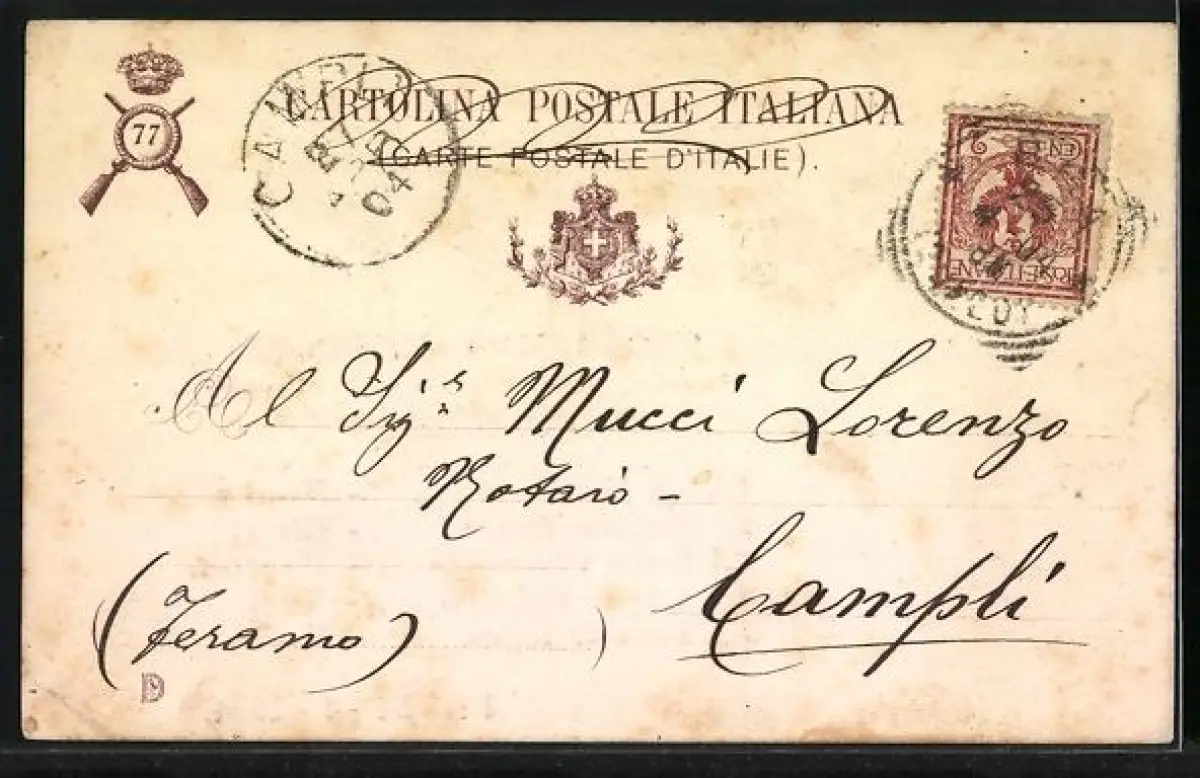 77
CAMPLI
04
CARTOLINA POSTALE ITALIANA
(CARTE POSTALE D'ITALIE).
CENT. 2
POSTE ITALIANE
Al Sig.r Mucci Lorenzo
Notaio -
Campli
(Teramo)
D